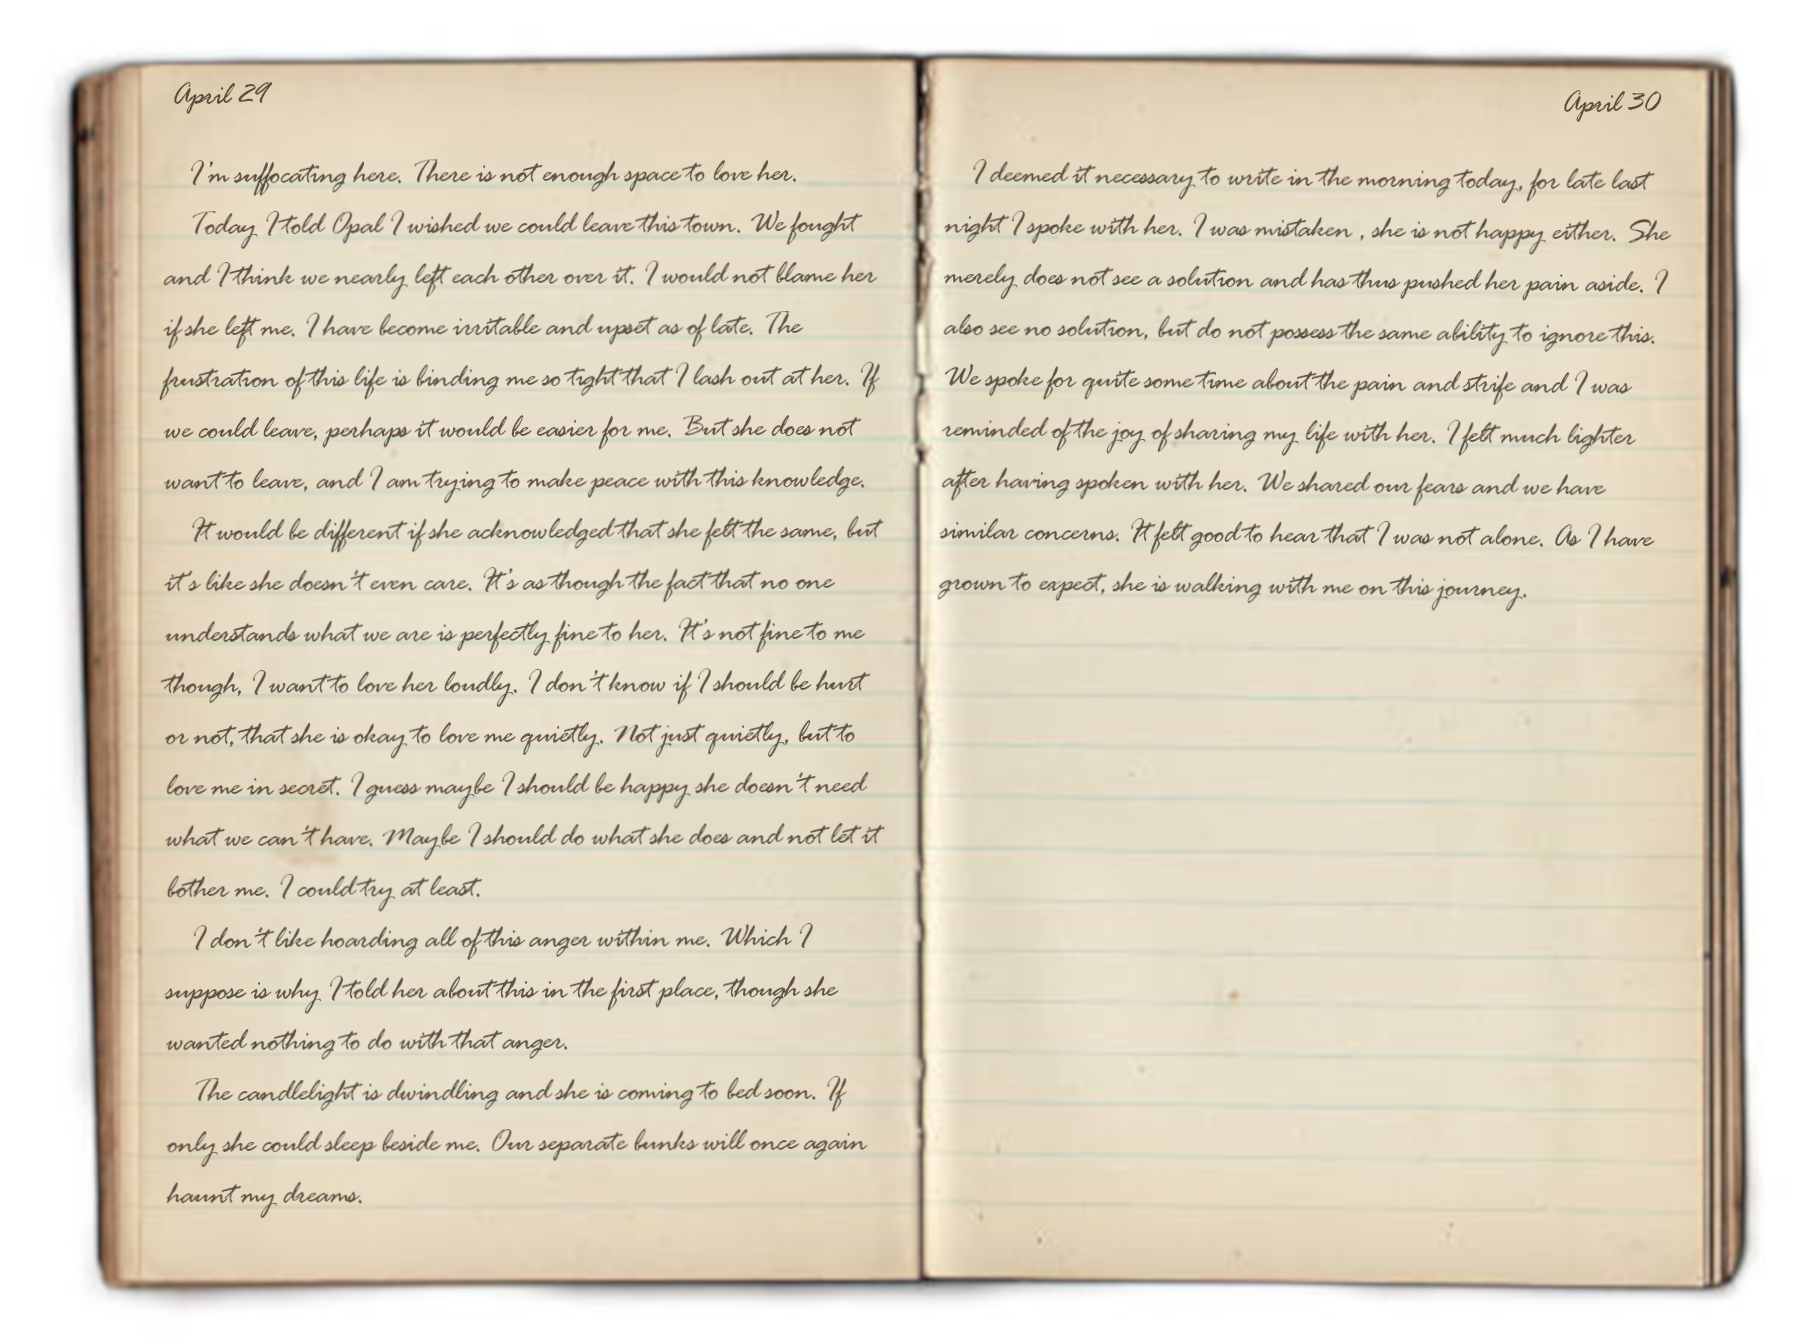 April 29
I'm suffocating here. There is not enough space to love her.
Today I told Opal I wished we could leave this town. We fought
and I think we nearly left each other over it. I would not blame her
if she left me. I have become irritable and upset as of late. The
frustration of this life is binding me so tight that I lash out at her. If
we could leave, perhaps it would be easier for me. But she does not
want to leave, and I am trying to make peace with this knowledge.
It would be different if she acknowledged that she felt the same, but
it's like she doesn't even care. It's as though the fact that no one
understands what we are is perfectly fine to her. It's not fine to me
though, I want to love her loudly. I don't know if I should be hurt
or not, that she is okay to love me quietly. Not just quietly, but to
love me in secret. I guess maybe I should be happy she doesn't need
what we can't have. Maybe I should do what she does and not let it
bother me. I could try at least.
I don't like hoarding all of this anger within me. Which I
suppose is why I told her about this in the first place, though she
wanted nothing to do with that anger.
The candlelight is dwindling and she is coming to bed soon. If
only she could sleep beside me. Our separate bunks will once again
haunt my dreams.
April 30
I deemed it necessary to write in the morning today, for late last
night I spoke with her. I was mistaken , she is not happy either. She
merely does not see a solution and has thus pushed her pain aside. I
also see no solution, but do not possess the same ability to ignore this.
We spoke for quite some time about the pain and strife and I was
reminded of the joy of sharing my life with her. I felt much lighter
after having spoken with her. We shared our fears and we have
similar concerns. It felt good to hear that I was not alone. As I have
grown to expect, she is walking with me on this journey.